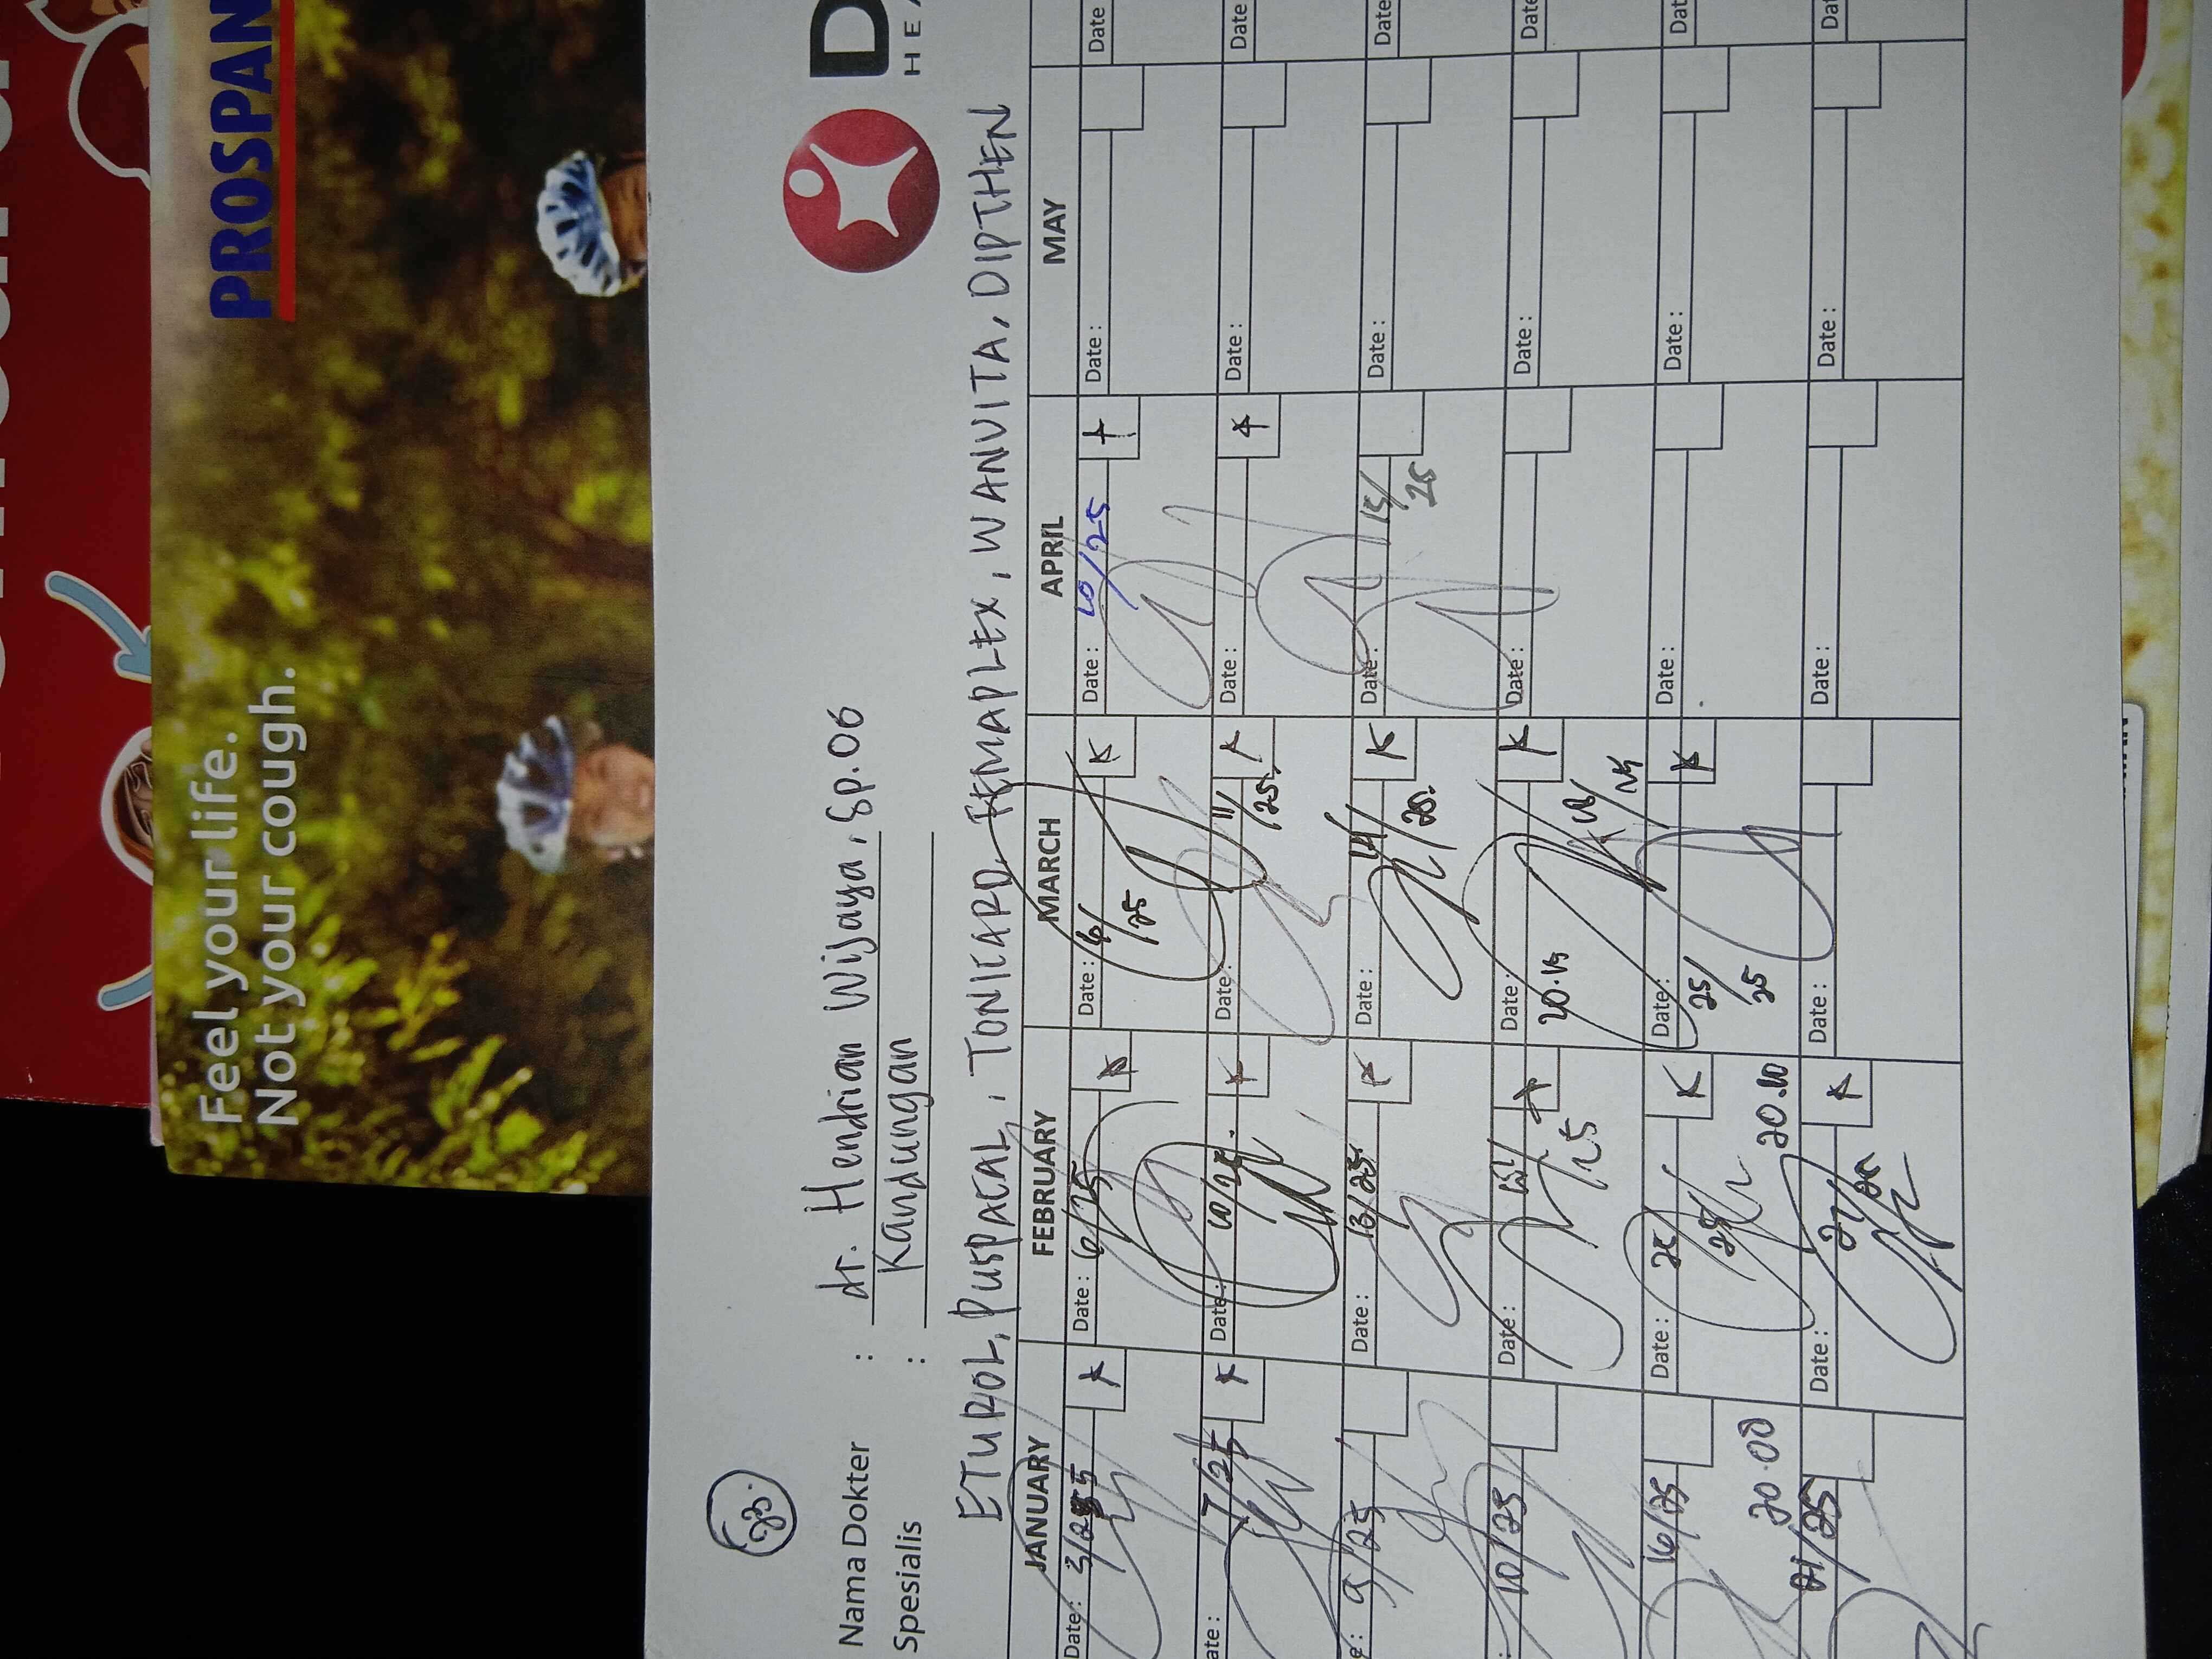 PROSPAN
Feel your life.
Not your cough.
D
HEA
Nama Dokter : dr. Hendrian Wijaya, Sp.OG
Spesialis : Kandungan
ETUROL, PUSPACAL, TONICARD, FEMAPLEX, WANVITA, DIPTHEN
JANUARY FEBRUARY MARCH APRIL MAY
Date : 3/25 Date : 6/25 Date : 6/25 K Date : 10/25 Date : Date
ate : 7/25 Date : 10/25 Date : 11/25 Date : Date : Date
e : 9/25 Date : 13/25 Date : 14/25 K Date : 15/25 Date : Date
: 10/25 Date : Date : 20.15 Date : Date : Date
16/25 Date : 25/25 K Date : 25/25 Date : Date : Dat
20.00 20.10
21/25 Date : 27/25 Date : Date : Date : Dat